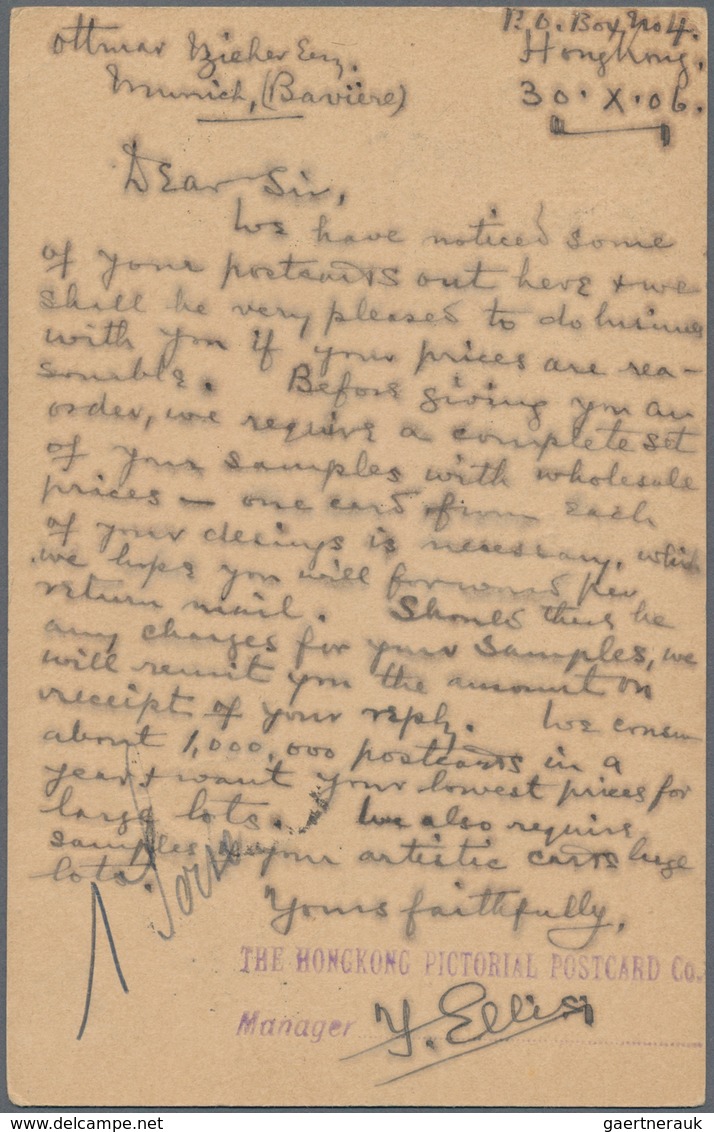 P.O. Box No 4.
Hongkong.
30.X.06.
Ottmar Zieher Esq.
Munich, (Bavière)
Dear Sir,
We have noticed some
of your postcards out here & we
shall be very pleased to do business
with you if your prices are rea-
sonable. Before giving you an
order, we require a complete set
of your samples with wholesale
prices — one card from each
of your desings is necessary, which
we hope you will forward per
return mail. Should there be
any charges for your samples, we
will remit you the amount on
receipt of your reply. We consum
about 1,000,000 postcards in a
year & want your lowest prices for
large lots. We also require
samples of your artistic cards huge
lots.
Yours faithfully,
THE HONGKONG PICTORIAL POSTCARD Co.
Manager Y. Ellis
gaertnerauk